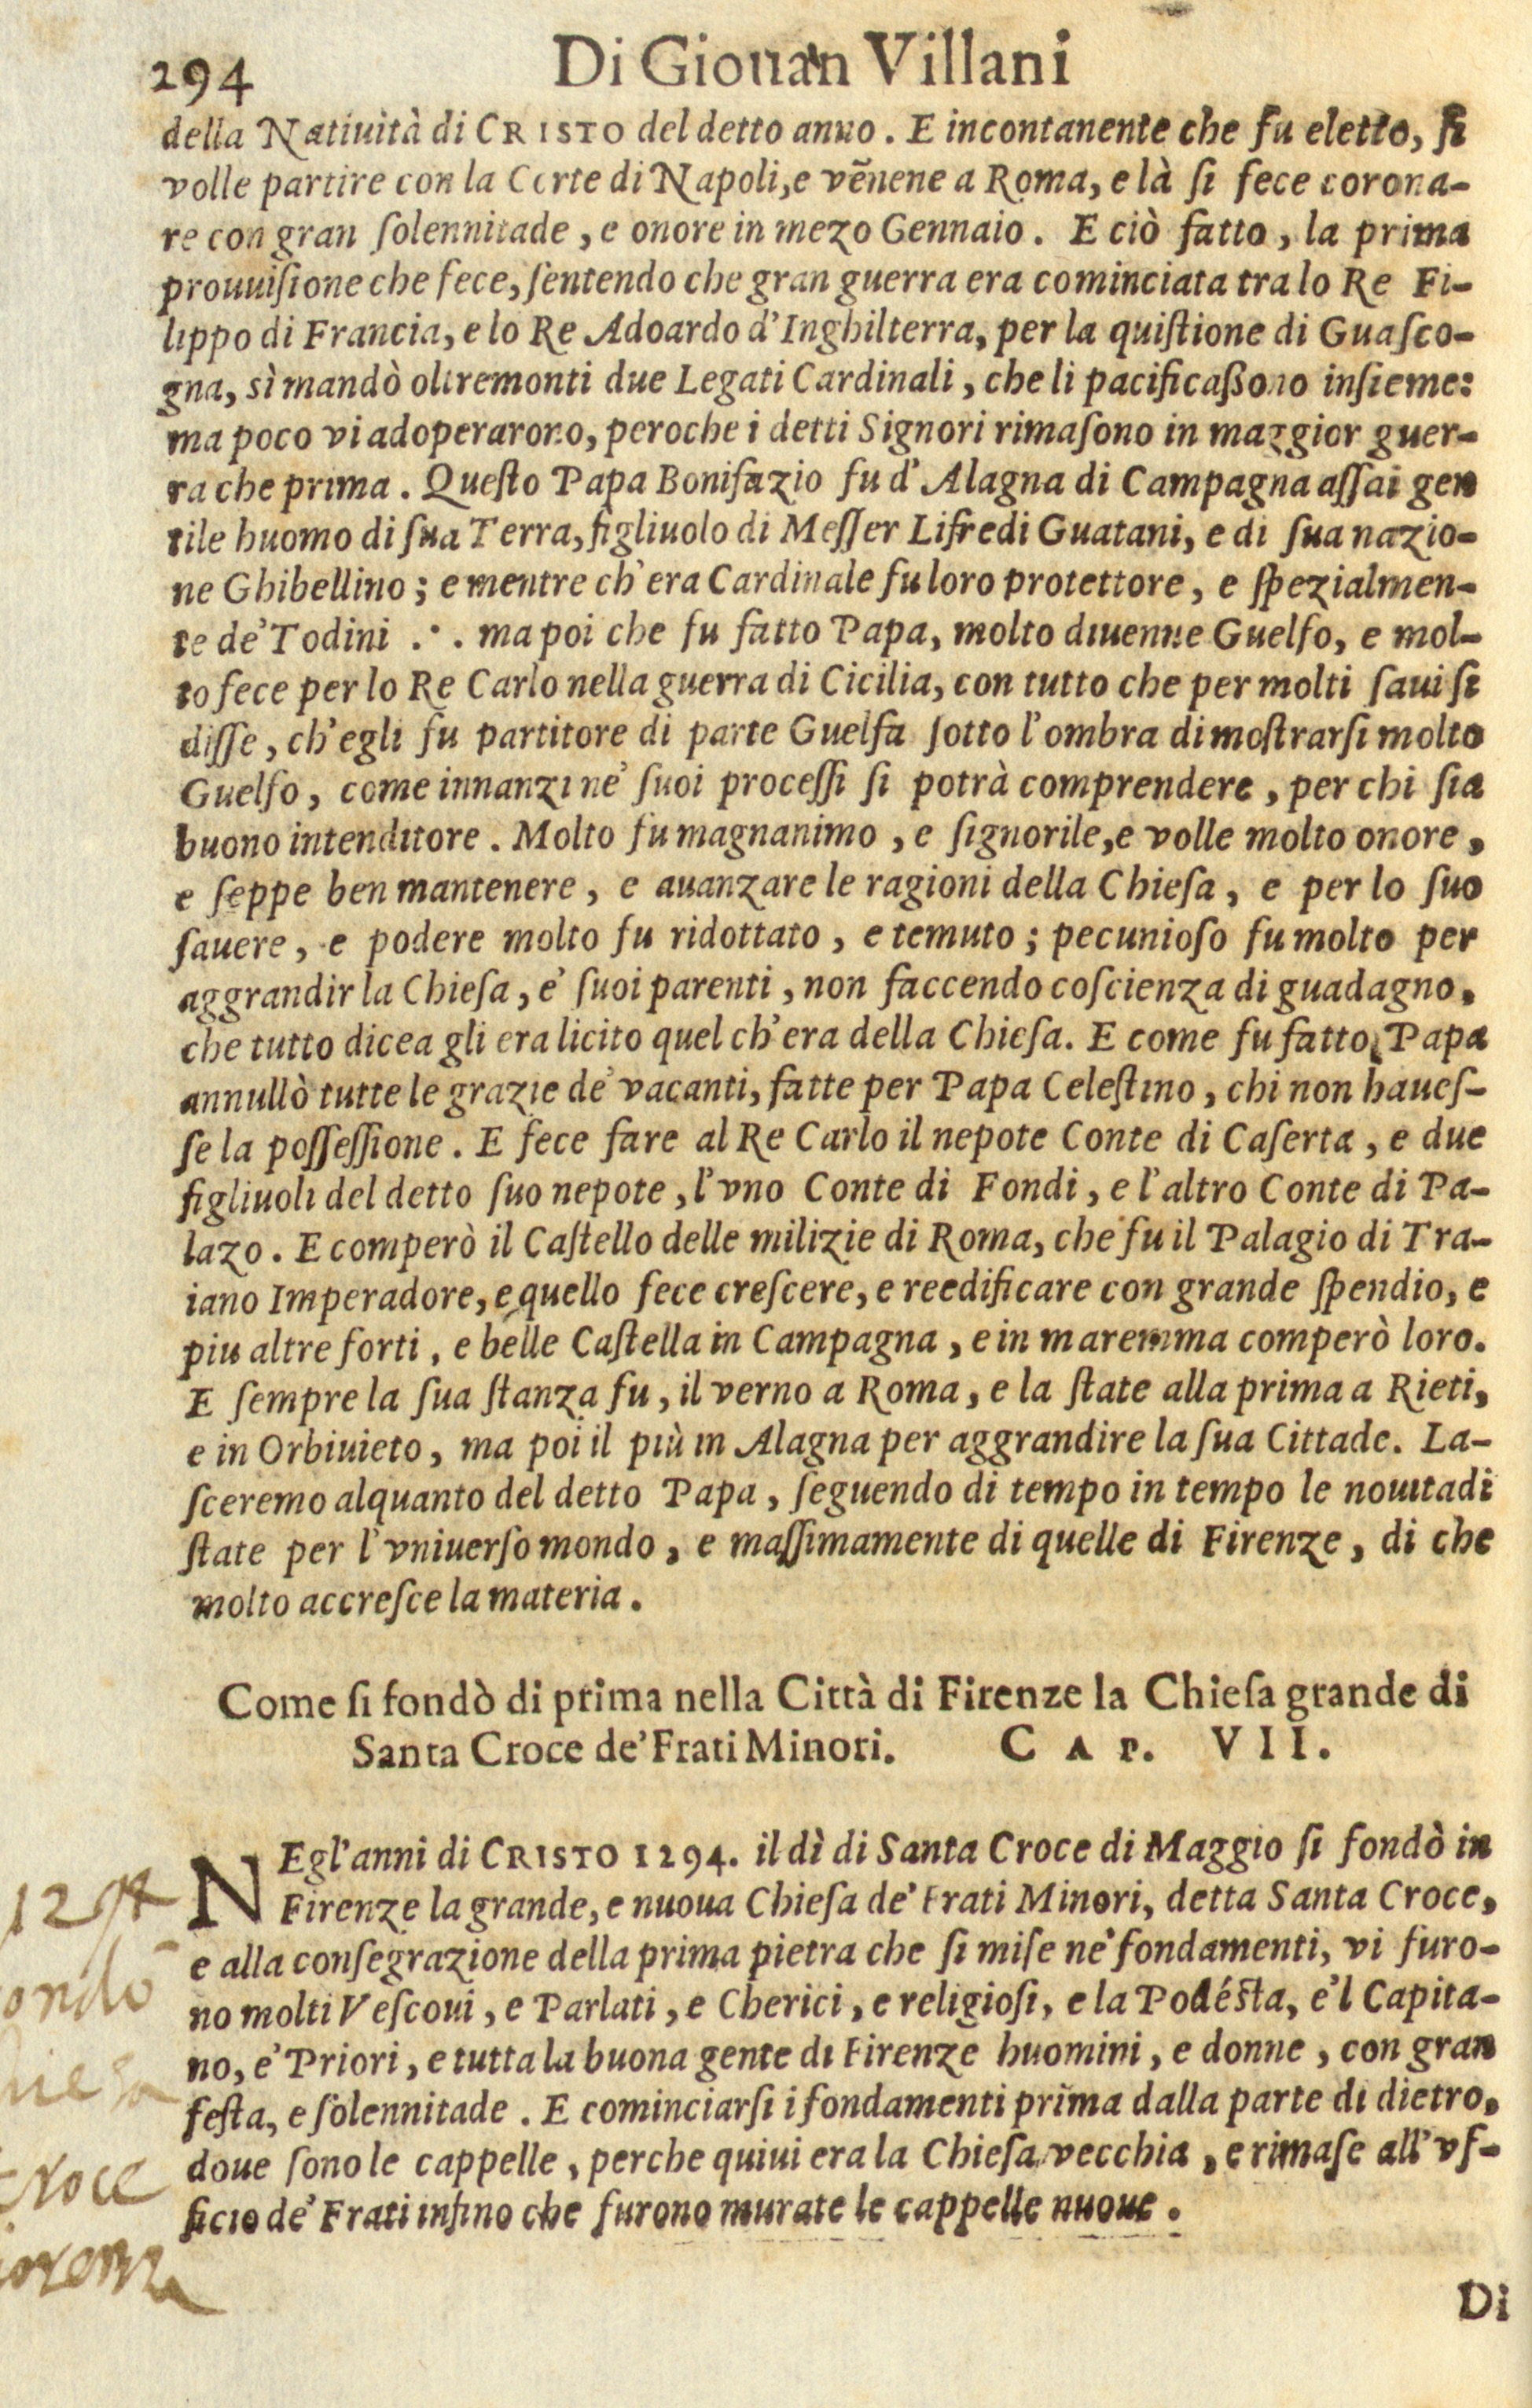 294 Di Giouan Villani
della Natiuità di CRISTO del detto anno. E incontanente che fu eletto, ſi
volle partire con la Corte di Napoli, e vẽnene a Roma, e là ſi fece corona-
re con gran ſolennitade, e onore in mezo Gennaio. E ciò fatto, la prima
prouuiſione che fece, ſentendo che gran guerra era cominciata tra lo Re Fi-
lippo di Francia, e lo Re Adoardo d'Inghilterra, per la quiſtione di Guaſco-
gna, sì mandò oltremonti due Legati Cardinali, che li pacificaßono inſieme:
ma poco vi adoperarono, peroche i detti Signori rimaſono in maggior guer-
ra che prima. Queſto Papa Bonifazio fu d'Alagna di Campagna aſſai gen
tile huomo di ſua Terra, figliuolo di Meſſer Lifredi Guatani, e di ſua nazio-
ne Ghibellino; e mentre ch'era Cardinale fu loro protettore, e ſpezialmen-
te de' Todini .·. ma poi che fu fatto Papa, molto diuenne Guelfo, e mol-
to fece per lo Re Carlo nella guerra di Cicilia, con tutto che per molti ſaui ſi
diſſe, ch'egli fu partitore di parte Guelfa ſotto l'ombra di moſtrarſi molto
Guelfo, come innanzi ne' ſuoi proceſſi ſi potrà comprendere, per chi ſia
buono intenditore. Molto fu magnanimo, e ſignorile, e volle molto onore,
e ſeppe ben mantenere, e auanzare le ragioni della Chieſa, e per lo ſuo
ſauere, e podere molto fu ridottato, e temuto; pecunioſo fu molto per
aggrandir la Chieſa, e' ſuoi parenti, non faccendo coſcienza di guadagno,
che tutto dicea gli era licito quel ch'era della Chieſa. E come fu fatto Papa
annullò tutte le grazie de' vacanti, fatte per Papa Celeſtino, chi non haueſ-
ſe la poſſeſſione. E fece fare al Re Carlo il nepote Conte di Caſerta, e due
figliuoli del detto ſuo nepote, l'vno Conte di Fondi, e l'altro Conte di Pa-
lazo. E comperò il Caſtello delle milizie di Roma, che fu il Palagio di Tra-
iano Imperadore, e quello fece creſcere, e reedificare con grande ſpendio, e
piu altre forti, e belle Caſtella in Campagna, e in maremma comperò loro.
E ſempre la ſua ſtanza fu, il verno a Roma, e la ſtate alla prima a Rieti,
e in Orbiuieto, ma poi il più in Alagna per aggrandire la ſua Cittade. La-
ſceremo alquanto del detto Papa, ſeguendo di tempo in tempo le nouitadi
ſtate per l'vniuerſo mondo, e maſſimamente di quelle di Firenze, di che
molto accreſce la materia.
Come ſi fondò di prima nella Città di Firenze la Chieſa grande di
Santa Croce de' Frati Minori. CAP. VII.
NEgl'anni di CRISTO 1294. il dì di Santa Croce di Maggio ſi fondò in
Firenze la grande, e nuoua Chieſa de' Frati Minori, detta Santa Croce,
e alla conſegrazione della prima pietra che ſi miſe ne' fondamenti, vi furo-
no molti Veſcoui, e Parlati, e Cherici, e religioſi, e la Podéſta, e'l Capita-
no, e' Priori, e tutta la buona gente di Firenze huomini, e donne, con gran
feſta, e ſolennitade. E cominciarſi i fondamenti prima dalla parte di dietro,
doue ſono le cappelle, perche quiui era la Chieſa vecchia, e rimaſe all'vf-
ficio de' Frati infino che furono murate le cappelle nuoue.
Di
1294
ondò
hiesa
croce
iorenza